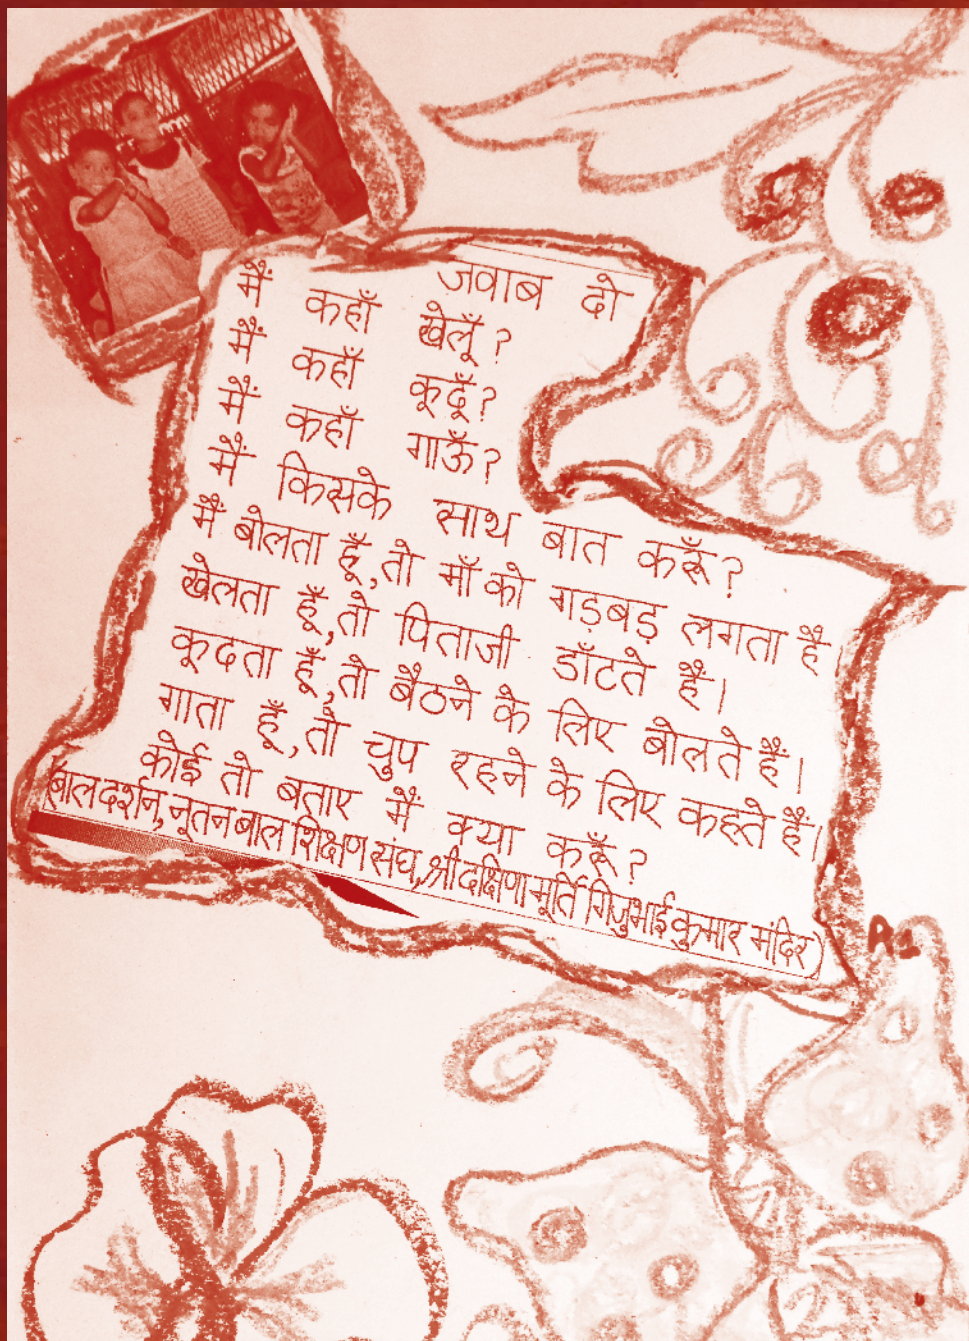 जवाब दो
मैं कहाँ खेलूँ?
मैं कहाँ कूदूँ?
मैं कहाँ गाऊँ?
मैं किसके साथ बात करूँ?
मैं बोलता हूँ,तो माँ को गड़बड़ लगता है।
खेलता हूँ,तो पिताजी डाँटते हैं।
कूदता हूँ,तो बैठने के लिए बोलते हैं।
गाता हूँ,तो चुप रहने के लिए कहते हैं।
कोई तो बताए मैं क्या करूँ?
(बाल दर्शन, नूतन बाल शिक्षण संघ, श्री दक्षिणा मूर्ति गिजुभाई कुमार मंदिर)
A1